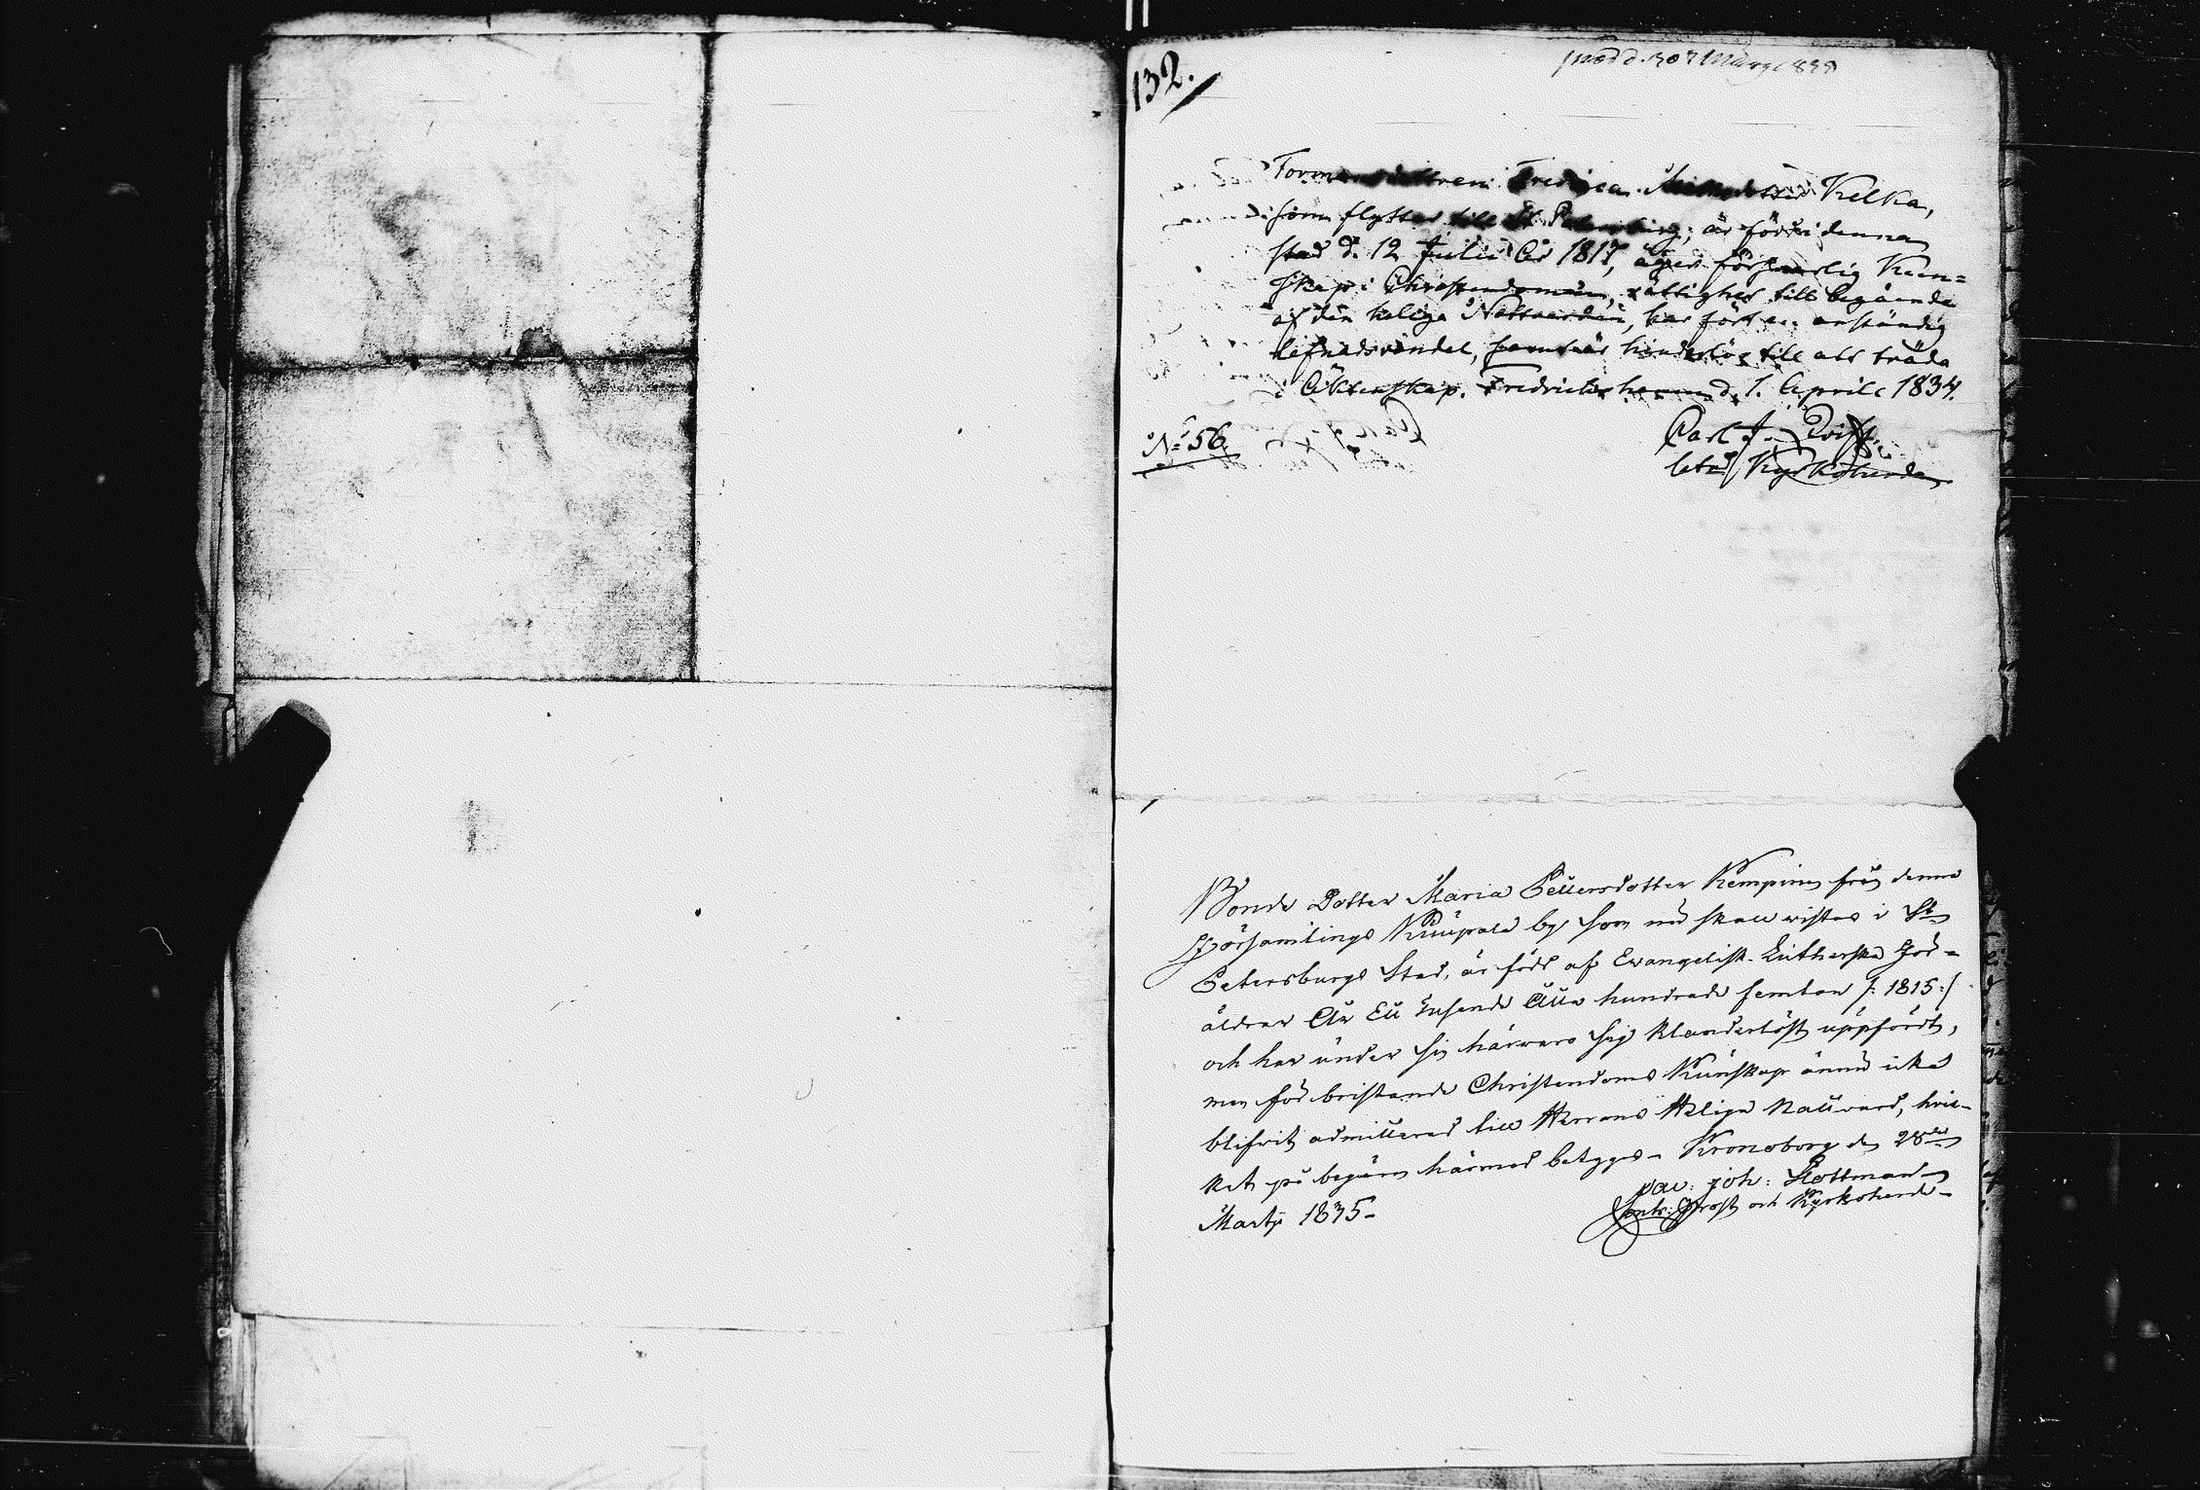 132.
Kelka,
som flyttar till St. Petersburg, är född i denna
stad d. 12 Julii år 1817, äger försvarlig Kun=
skap i Christendomen, rättighet till begående
af den heliga Nattvarden, har fört en anständig
lefnadsvandel, samt är hinderlös till att träda
i Äktenskap. Fredrikshamn d. 1. April 1834.
Carl J.
Kyrkoherde
No 56.
Bonde Dotter Maria Pettersdotter Kempinen från denne
Församlings by som nu skall wistas i St
Petersburgs Stad, är född af Ewangelisk-Lutherska För-
äldrar År Ett tusende Åtta hundrade femton /: 1815 :/
och har under sin härwaro sig klanderlöst uppfördt,
men för bristande Christendoms Kunskap ännu icke
blifwit admitterad till Herrans Heliga Nattvard, hvil-
ket på begäran härmed betygas. Kronoborg den 28de
Martji 1835.
joh: Hottman
Prost och Kyrkoherde